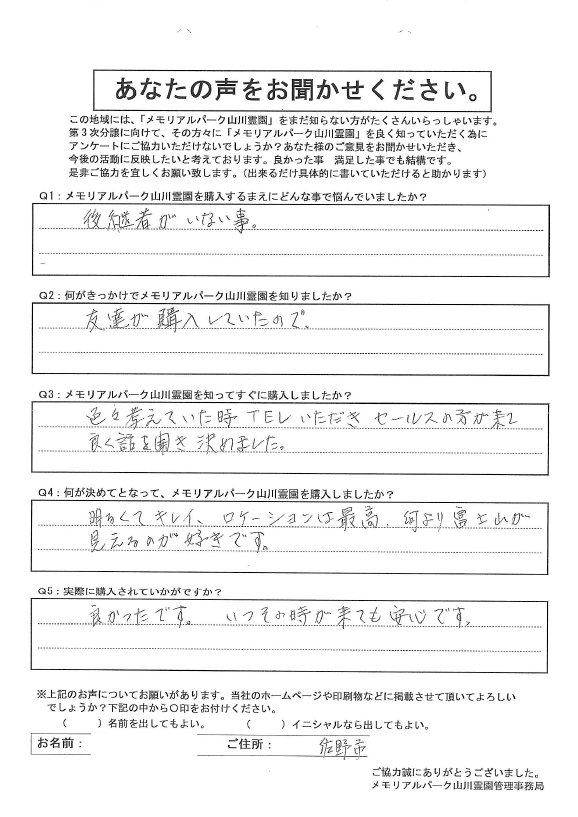 あなたの声をお聞かせください。
この地域には、「メモリアルパーク山川霊園」をまだ知らない方がたくさんいらっしゃいます。
第３次分譲に向けて、その方々に「メモリアルパーク山川霊園」を良く知っていただく為に
アンケートにご協力いただけないでしょうか？あなた様のご意見をお聞かせいただき、
今後の活動に反映したいと考えております。良かった事　満足した事でも結構です。
是非ご協力を宜しくお願い致します。（出来るだけ具体的に書いていただけると助かります）
Ｑ1：メモリアルパーク山川霊園を購入するまえにどんな事で悩んでいましたか？
後継者がいない事。
Ｑ2：何がきっかけでメモリアルパーク山川霊園を知りましたか？
友達が購入していたので、
Ｑ3：メモリアルパーク山川霊園を知ってすぐに購入しましたか？
色々考えていた時 TEL いただき セールスの方が来て
良く話を聞き決めました。
Ｑ4：何が決めてとなって、メモリアルパーク山川霊園を購入しましたか？
明るくてキレイ、ロケーションは最高、何より富士山が
見えるのが好きです。
Ｑ5：実際に購入されていかがですか？
良かったです。 いつその時が来ても安心です。
※上記のお声についてお願いがあります。当社のホームページや印刷物などに掲載させて頂いてよろしい
でしょうか？下記の中から〇印をお付けください。
（　　）名前を出してもよい。　　（　　）イニシャルなら出してもよい。
お名前：　　ご住所：　佐野市
ご協力誠にありがとうございました。
メモリアルパーク山川霊園管理事務局